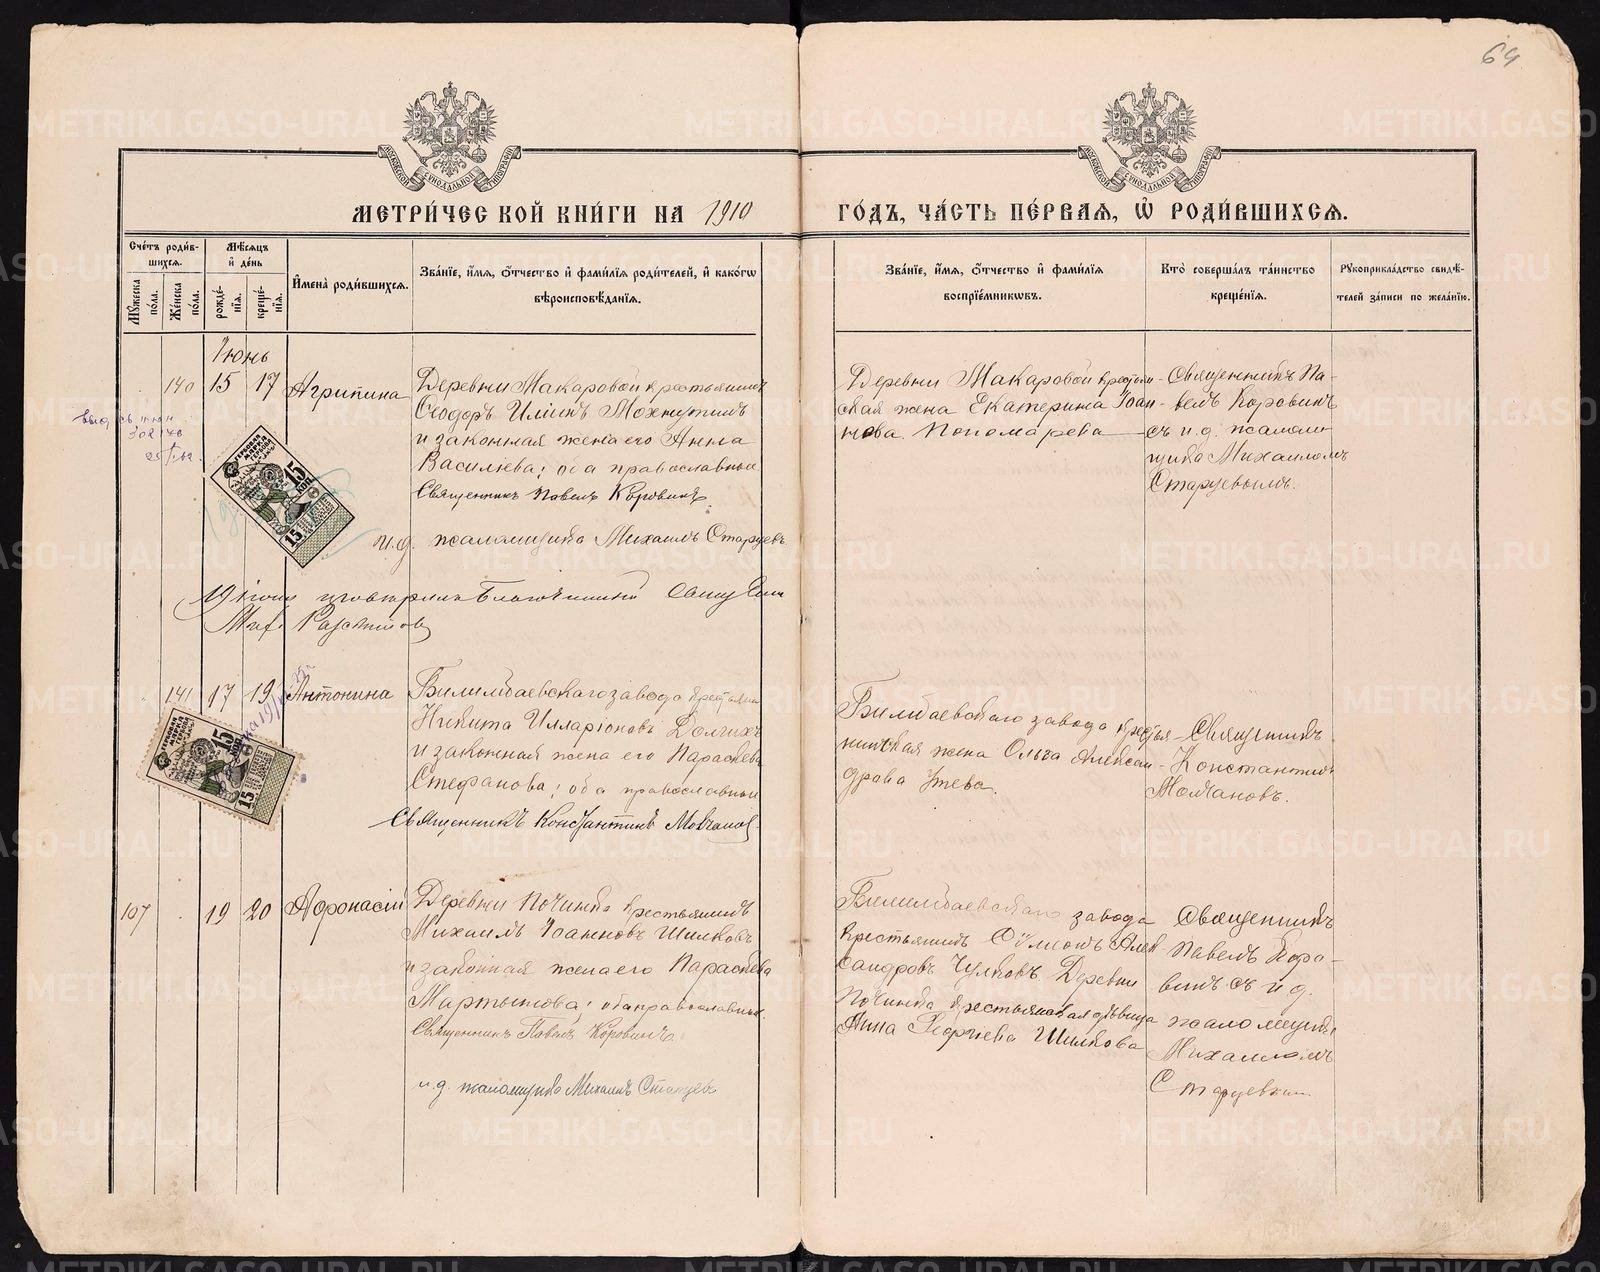 64
МОСКОВСКОЙ СѴНОДАЛЬНОЙ ТИПОГРАФІИ
МОСКОВСКОЙ СѴНОДАЛЬНОЙ ТИПОГРАФІИ
МЕТРИ́ЧЕСКОЙ КНИ́ГИ НА 1910
ГО́ДЪ, ЧА́СТЬ ПЕ́РВАЯ, Ѡ҆ РОДИ́ВШИХСЯ.
Сче́тъ роди́в-
шихся.
Мꙋ́жеска по́ла.
Же́нска по́ла.
Мѣ́сяцъ
и҆ де́нь
рожде́-
нїя.
креще́-
нїя.
И҆мена̀ роди́вшихся.
Зва́нїе, и҆́мя, ѻ҆́тчество и҆ фами́лїя роди́телей, и҆ како́гѡ
вѣроисповѣ́данїя.
Зва́нїе, и҆́мя, ѻ҆́тчество и҆ фами́лїя
воспрїе́мникѡвъ.
Кто̀ соверша́лъ та́инство
креще́нїя.
Рꙋкоприкла́дство свидѣ́-
телей за́писи по жела́нїю.
Іюнь
140 15 17 Агрипина
Деревни Макаровой крестьянинъ
Ѳеодоръ Илiинъ Мохнуткинъ
и законная жена его Анна
Васильева; оба православные
Священникъ Павелъ Коровинъ.
и. д. псаломщика Михаилъ Старцевъ
Деревни Макаровой крестьян-
ская жена Екатерина Іоан-
нова Пономарева
Священникъ Па-
велъ Коровинъ
съ и. д. псалом-
щика Михаиломъ
Старцевымъ.
15 КОП.
15
19 іюня Благочинный Свящ.
141 17 19 Антонина
Билимбаевскаго завода крестьянинъ
Никита Илларіоновъ Долгихъ
и законная жена его Параскева
Стефанова; оба православные
Священникъ Константинъ Молчановъ.
Билимбаевскаго завода крестья-
нинская жена Ольга Алексан-
дрова Утева.
Священникъ
Константинъ
Молчановъ.
15 КОП.
15
107 19 20 Афонасій
Деревни Починка крестьянинъ
Михаилъ Іоанновъ Шилковъ
и законная жена его Параскева
Мартынова; оба православные.
Священникъ Павелъ Коровинъ
и. д. псаломщика Михаилъ Старцевъ
Билимбаевскаго завода
крестьянинъ Алек-
сандровъ Чулковъ. Деревни
Починка крестьянская дѣвица
Анна Георгіева Шилкова
Священникъ
Павелъ Коро-
винъ съ и. д.
псаломщика
Михаиломъ
Старцевымъ
METRIKI.GASO-URAL.RU